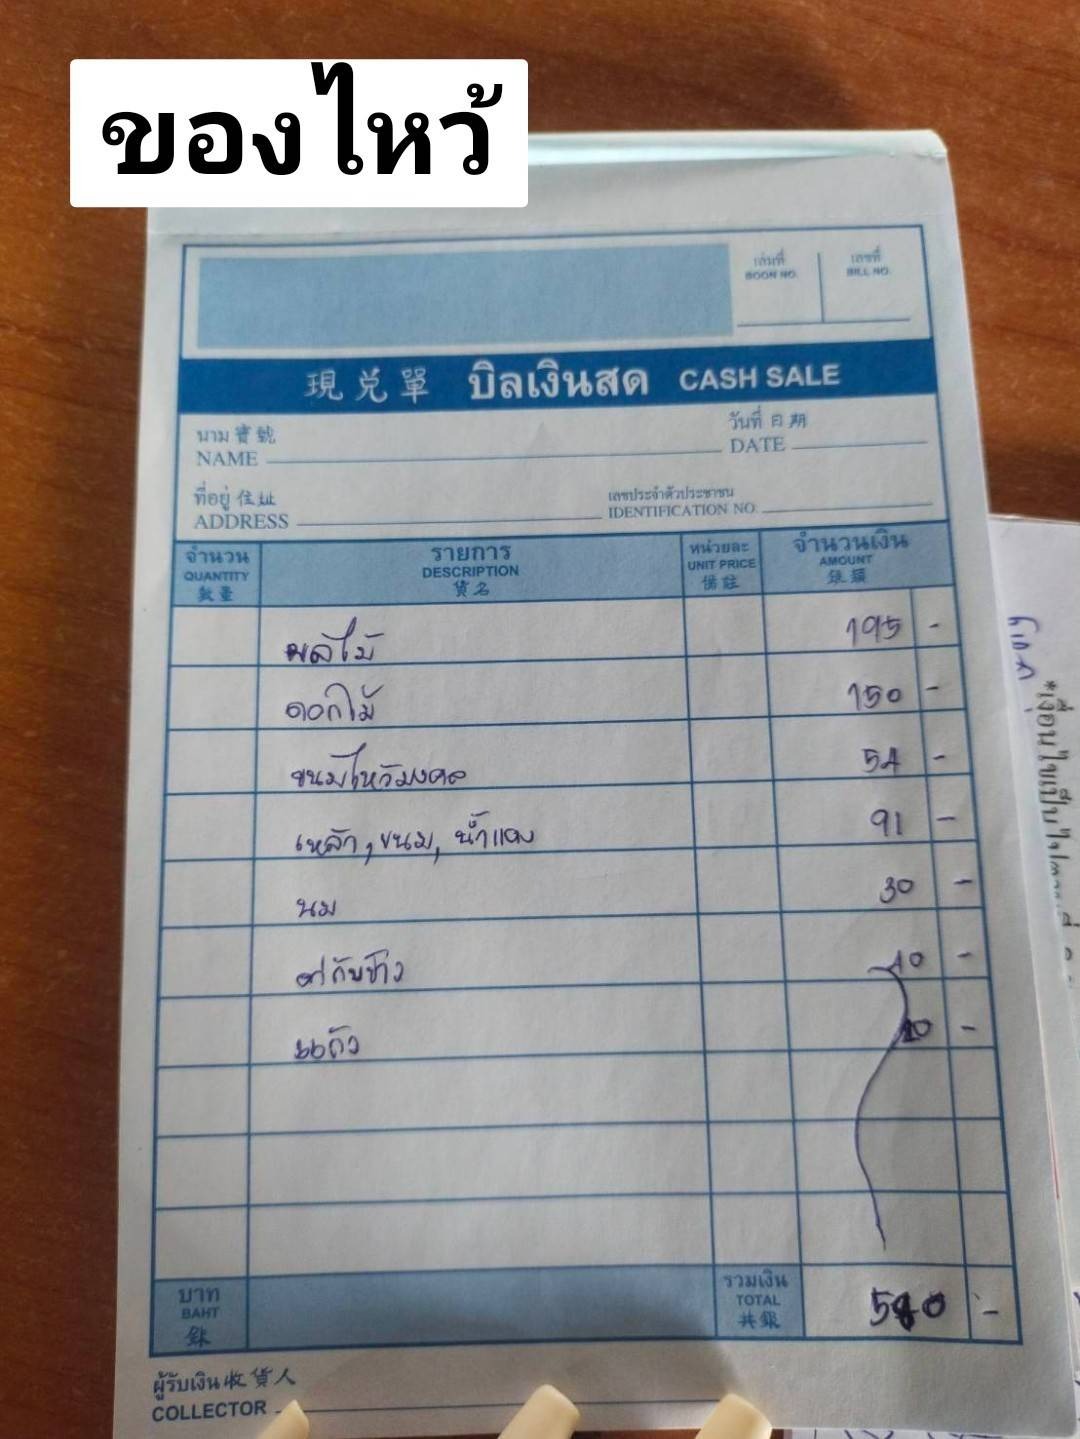 ของไหว้
เล่มที่ เลขที่
BOOK NO. BILL NO.
現兌單 บิลเงินสด CASH SALE
นาม 寶號 วันที่ 日期
NAME DATE
ที่อยู่ 住址 เลขประจำตัวประชาชน
ADDRESS IDENTIFICATION NO.
จำนวน รายการ หน่วยละ จำนวนเงิน
QUANTITY DESCRIPTION UNIT PRICE AMOUNT
數量 貨名 備註 銀額
ผลไม้ 195 -
ดอกไม้ 150 -
ขนมไหว้มงคล 54 -
เหล้า, ขนม, น้ำแดง 91 -
นม 30 -
กับข้าว 10 -
10 -
บาท รวมเงิน
BAHT TOTAL 540 -
銖 共銀
ผู้รับเงิน 收貨人
COLLECTOR
*เงื่อนไขเป็นไปตาม